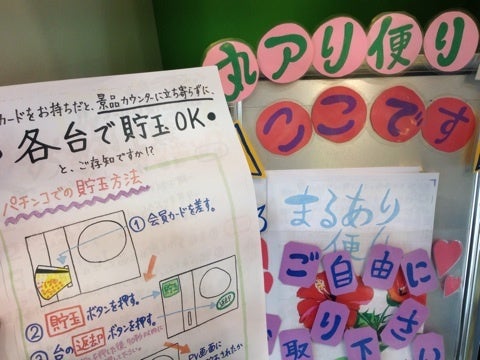 カードをお持ちだと、景品カウンターに立ち寄らずに、
各台で貯玉OK
と、ご存知ですか!?
パチンコでの貯玉方法
① 会員カードを差す。
② 貯玉 ボタンを押す。
③ 台の返却ボタンを押す。
貯玉
返却
丸アリ便り
ここです
まるあり
便
ご自由に
お取り下さい